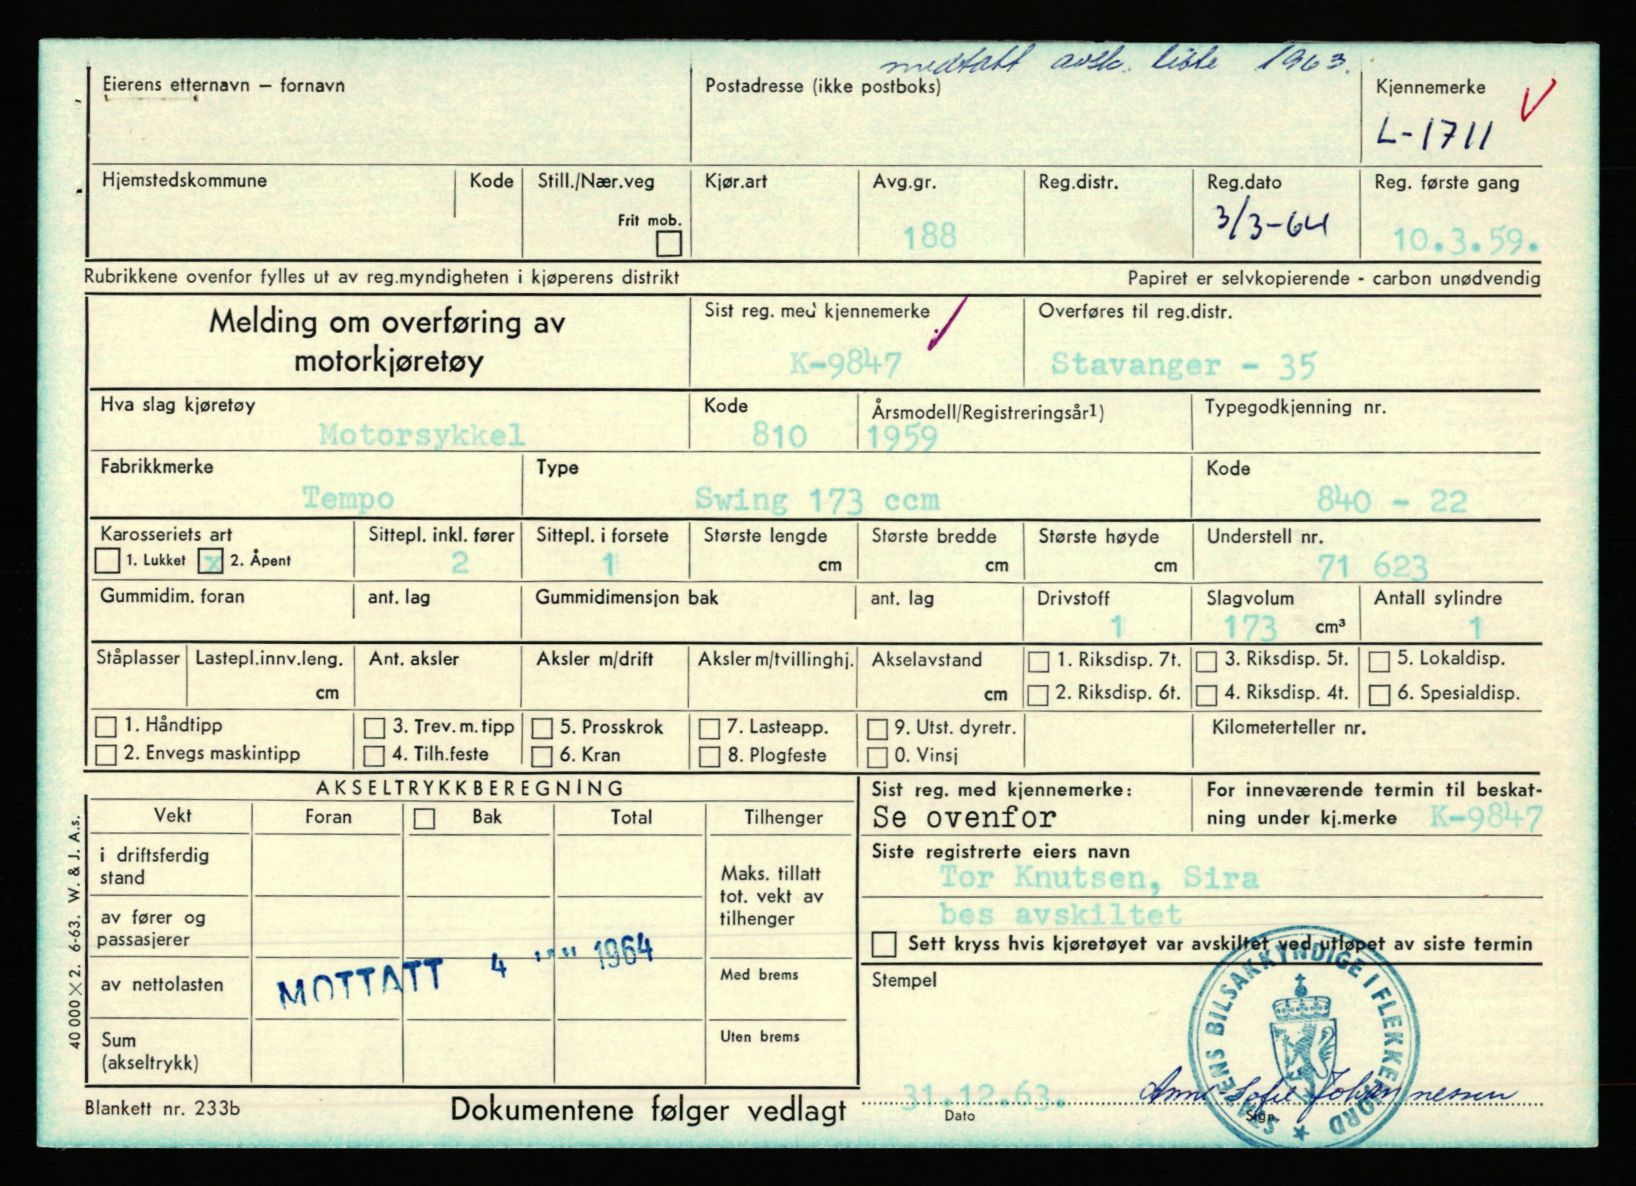 medtatt avsk. liste 1963.
Eierens etternavn – fornavn
Postadresse (ikke postboks)
Kjennemerke
L-1711
Hjemstedskommune
Kode
Still./Nær.veg
Frit mob.
Kjør.art
Avg.gr.
188
Reg.distr.
Reg.dato
3/3-64
Reg. første gang
10.3.59.
Rubrikkene ovenfor fylles ut av reg.myndigheten i kjøperens distrikt
Papiret er selvkopierende - carbon unødvendig
Melding om overføring av
motorkjøretøy
Sist reg. med kjennemerke
K-9847
Overføres til reg.distr.
Stavanger - 35
Hva slag kjøretøy
Motorsykkel
Kode
810
Årsmodell/Registreringsår1)
1959
Typegodkjenning nr.
Fabrikkmerke
Tempo
Type
Swing 173 ccm
Kode
840 - 22
Karosseriets art
1. Lukket x 2. Åpent
Sittepl. inkl. fører
2
Sittepl. i forsete
1
Største lengde
cm
Største bredde
cm
Største høyde
cm
Understell nr.
71 623
Gummidim. foran
ant. lag
Gummidimensjon bak
ant. lag
Drivstoff
1
Slagvolum
173 cm³
Antall sylindre
1
Ståplasser
Lastepl.innv.leng.
cm
Ant. aksler
Aksler m/drift
Aksler m/tvillinghj.
Akselavstand
cm
1. Riksdisp. 7t.
2. Riksdisp. 6t.
3. Riksdisp. 5t.
4. Riksdisp. 4t.
5. Lokaldisp.
6. Spesialdisp.
1. Håndtipp
2. Envegs maskintipp
3. Trev. m. tipp
4. Tilh.feste
5. Prosskrok
6. Kran
7. Lasteapp.
8. Plogfeste
9. Utst. dyretr.
0. Vinsj
Kilometerteller nr.
AKSELTRYKKBEREGNING
Vekt
Foran
Bak
Total
Tilhenger
i driftsferdig
stand
av fører og
passasjerer
av nettolasten
Sum
(akseltrykk)
Maks. tillatt
tot. vekt av
tilhenger
Med brems
Uten brems
MOTTATT 4 1964
Sist reg. med kjennemerke:
Se ovenfor
For inneværende termin til beskat-
ning under kj.merke K-9847
Siste registrerte eiers navn
Tor Knutsen, Sira
bes avskiltet
Sett kryss hvis kjøretøyet var avskiltet ved utløpet av siste termin
Stempel
STATENS BILSAKKYNDIGE I FLEKKEFJORD
31.12.63.
Anne Sofie Johannessen
Dato
Sign.
40 000 × 2. 6-63. W. & J. A.s.
Blankett nr. 233b
Dokumentene følger vedlagt